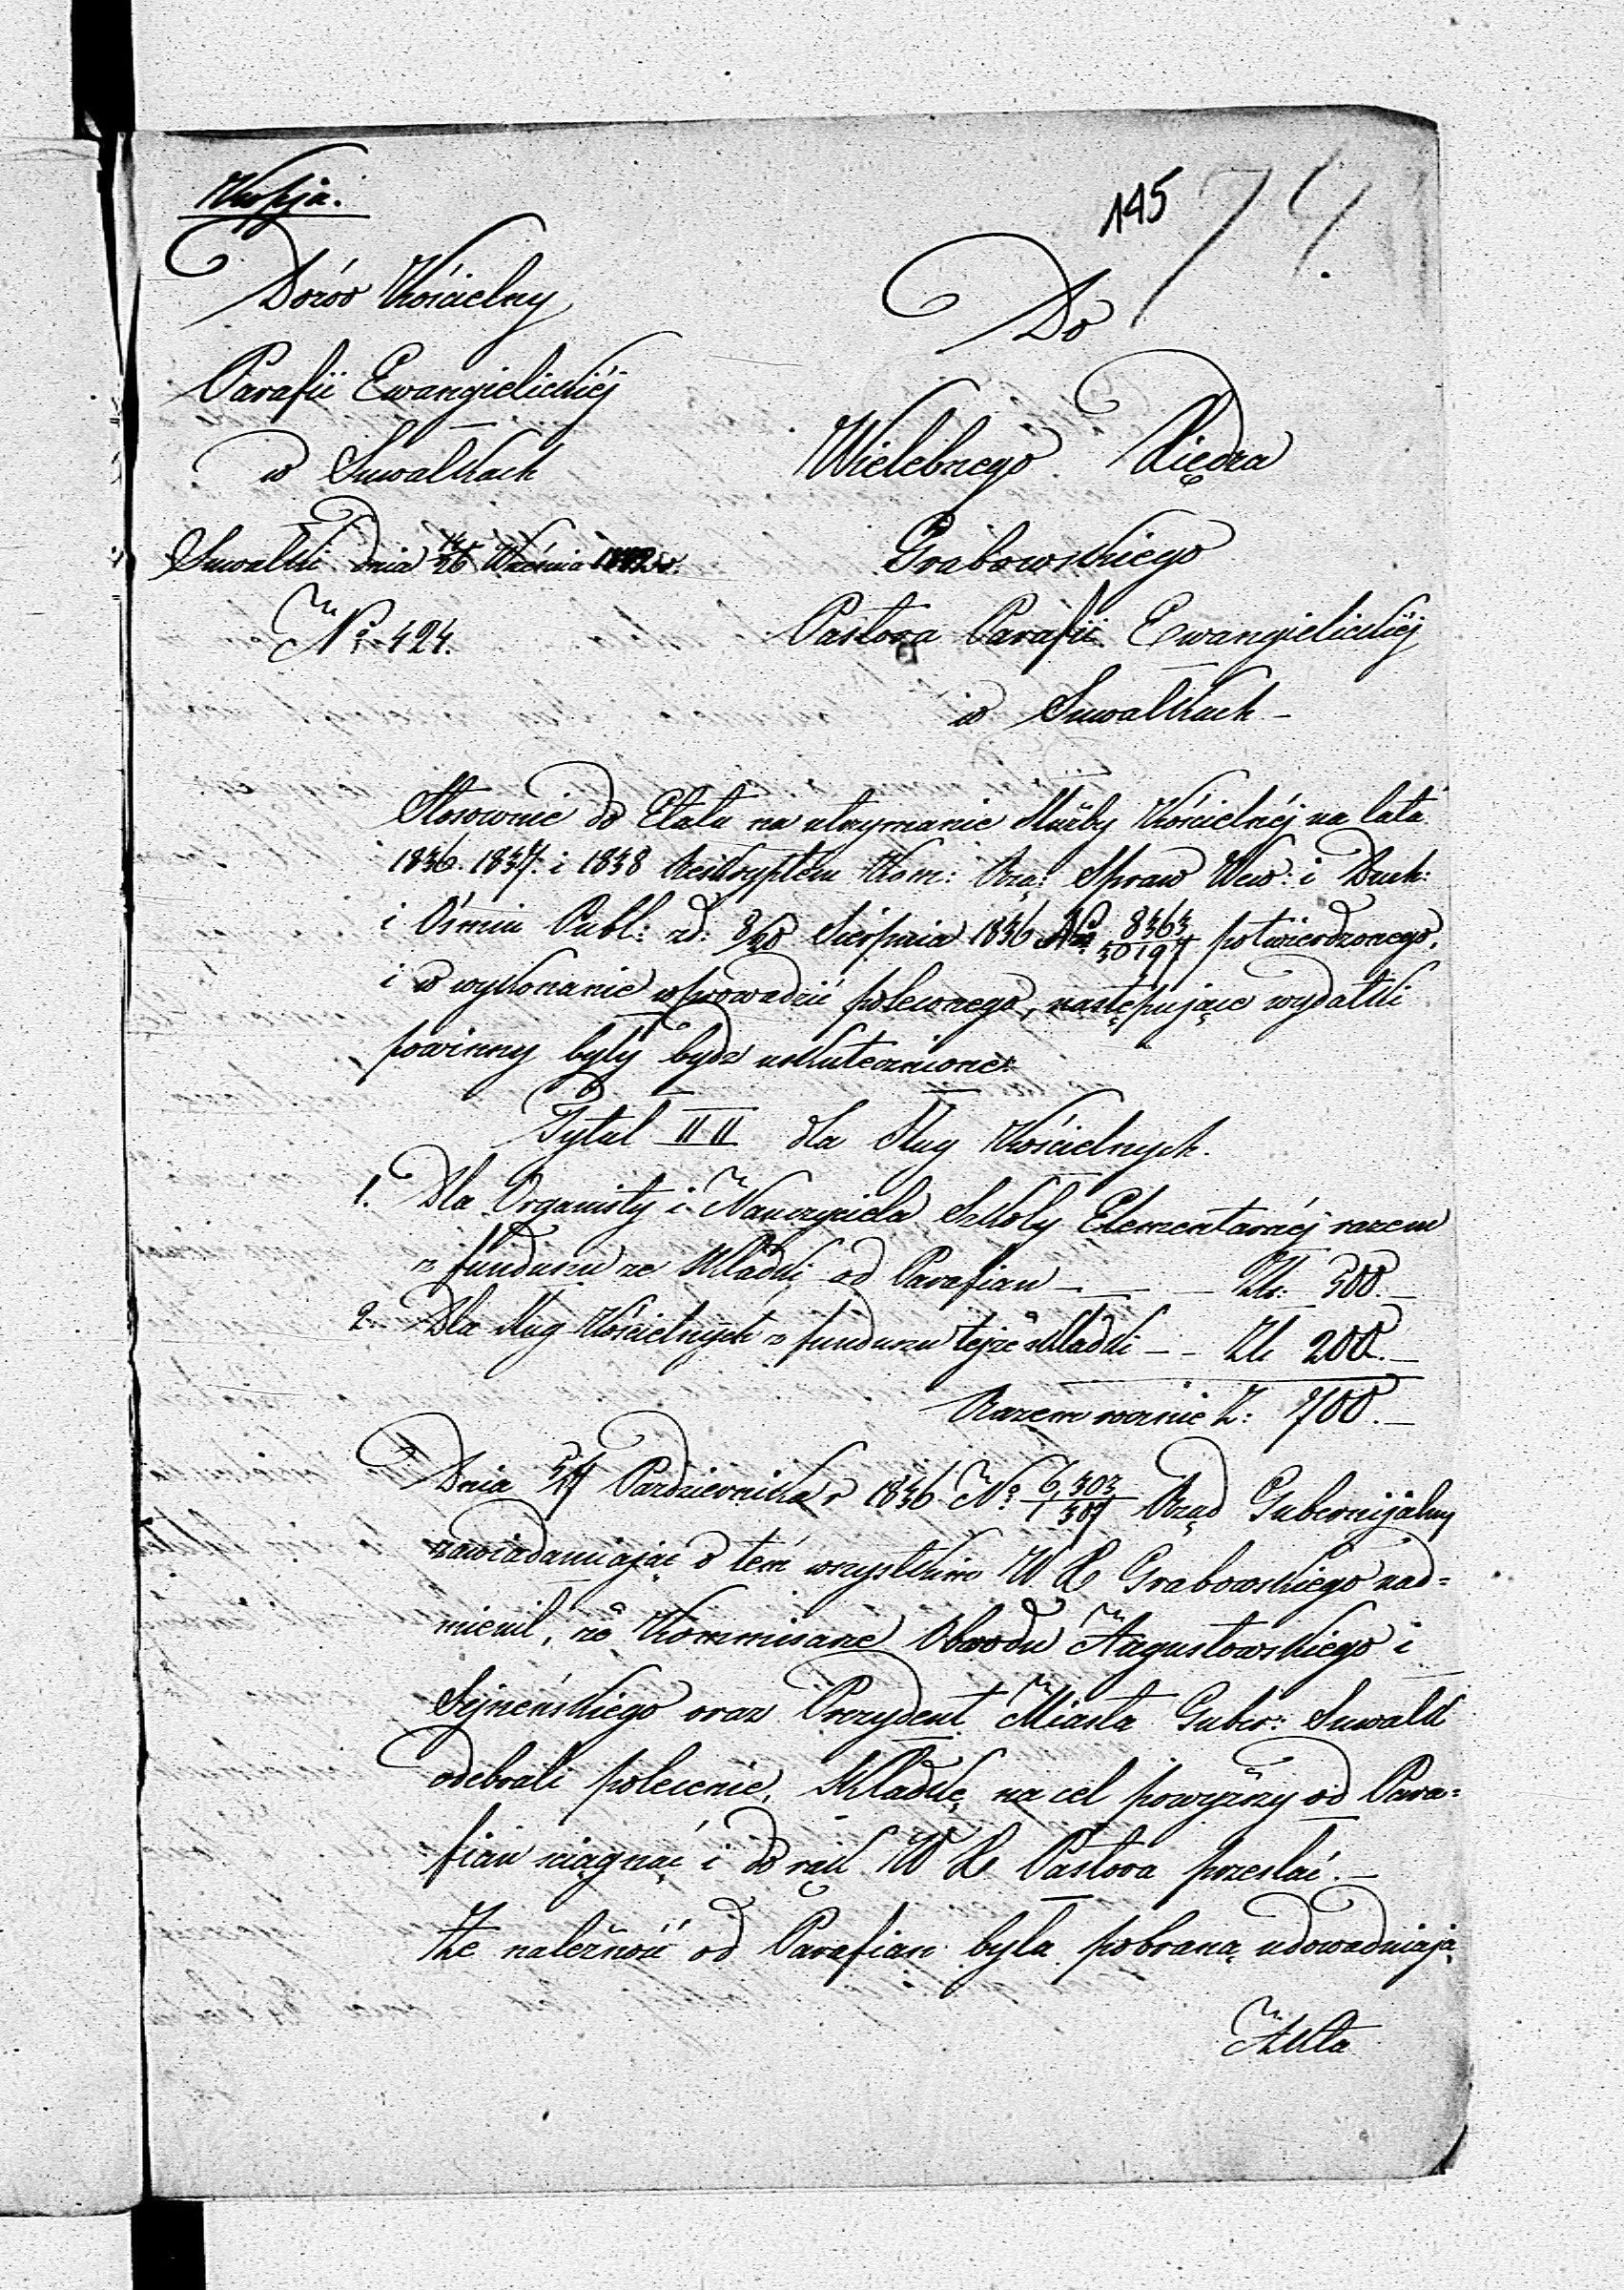 Kopja.
145
74
Dozór Kościelny
Parafii Ewangielickiéj
w Suwalkach
Suwalki dnia 14/26 Września
Nº 424.
Do
Wielebnego Xiędza
Grabowskiego
Pastora Parafii Ewangielickiéj
w Suwalkach –
Stosownie do Etatu na utrzymanie Służby Kościelnéj na lata
1836. 1837. i 1838 Reskryptem Kom: Rzą: Spraw Wew: i Duch:
i Oświe Publ: zd: 8/20 Sierpnia 1836 Nº 8363/30197 potwierdzonego,
i w wykonanie wprowadzić poleconego, następujące wydatki
powinny były bydz uskutecznione:
Tytul III dla Sług Kościelnych.
1. Dla Organisty i Nauczyciela Szkoły Elementarnéj razem
z funduszu ze składki od Parafian – – – Zł: 500. –
2. Dla sług Kościelnych z funduszu tejże składki – – Zł 200. –
Razem rocznie Z: 700. –
Dnia 5/17 Pazdziernika r 1836 Nº 6,303/1387 Rząd Gubernijalny
zawiadamiając o tém wszystkim W. X Grabowskiego nad=
mienił, że Kommisarze Obwodu Augustowskiego i
Sejneńskiego oraz Prezydent Miasta Guber: Suwalk
odebrali polecenie, składkę na cel powyższy od Para=
fian ściągnąć i do rąk W X Pastora przesłać. –
Że należność od Parafian była pobraną udowadniają
Akta